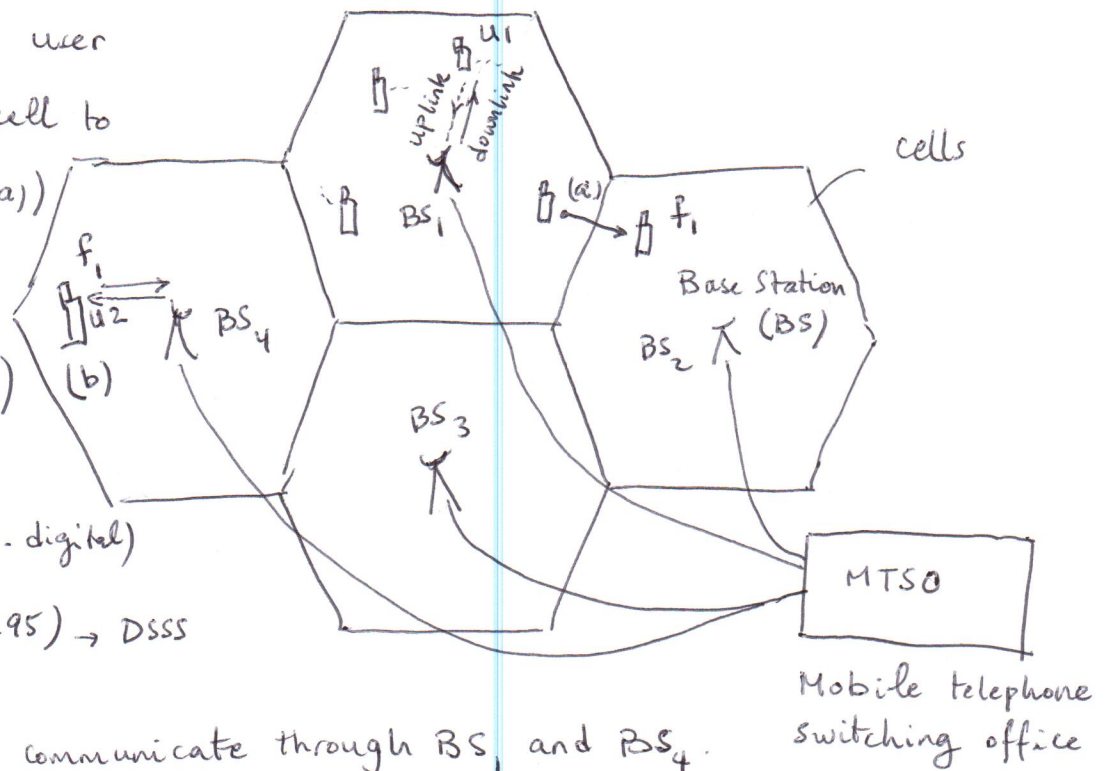 user
cell to
a))
)
. digital)
.95) → DSSS
communicate through BS1 and BS4.
u1
uplink
downlink
BS1
(a)
f1
cells
Base Station
(BS)
BS2
f1
u2
BS4
(b)
BS3
MTSO
Mobile telephone
switching office